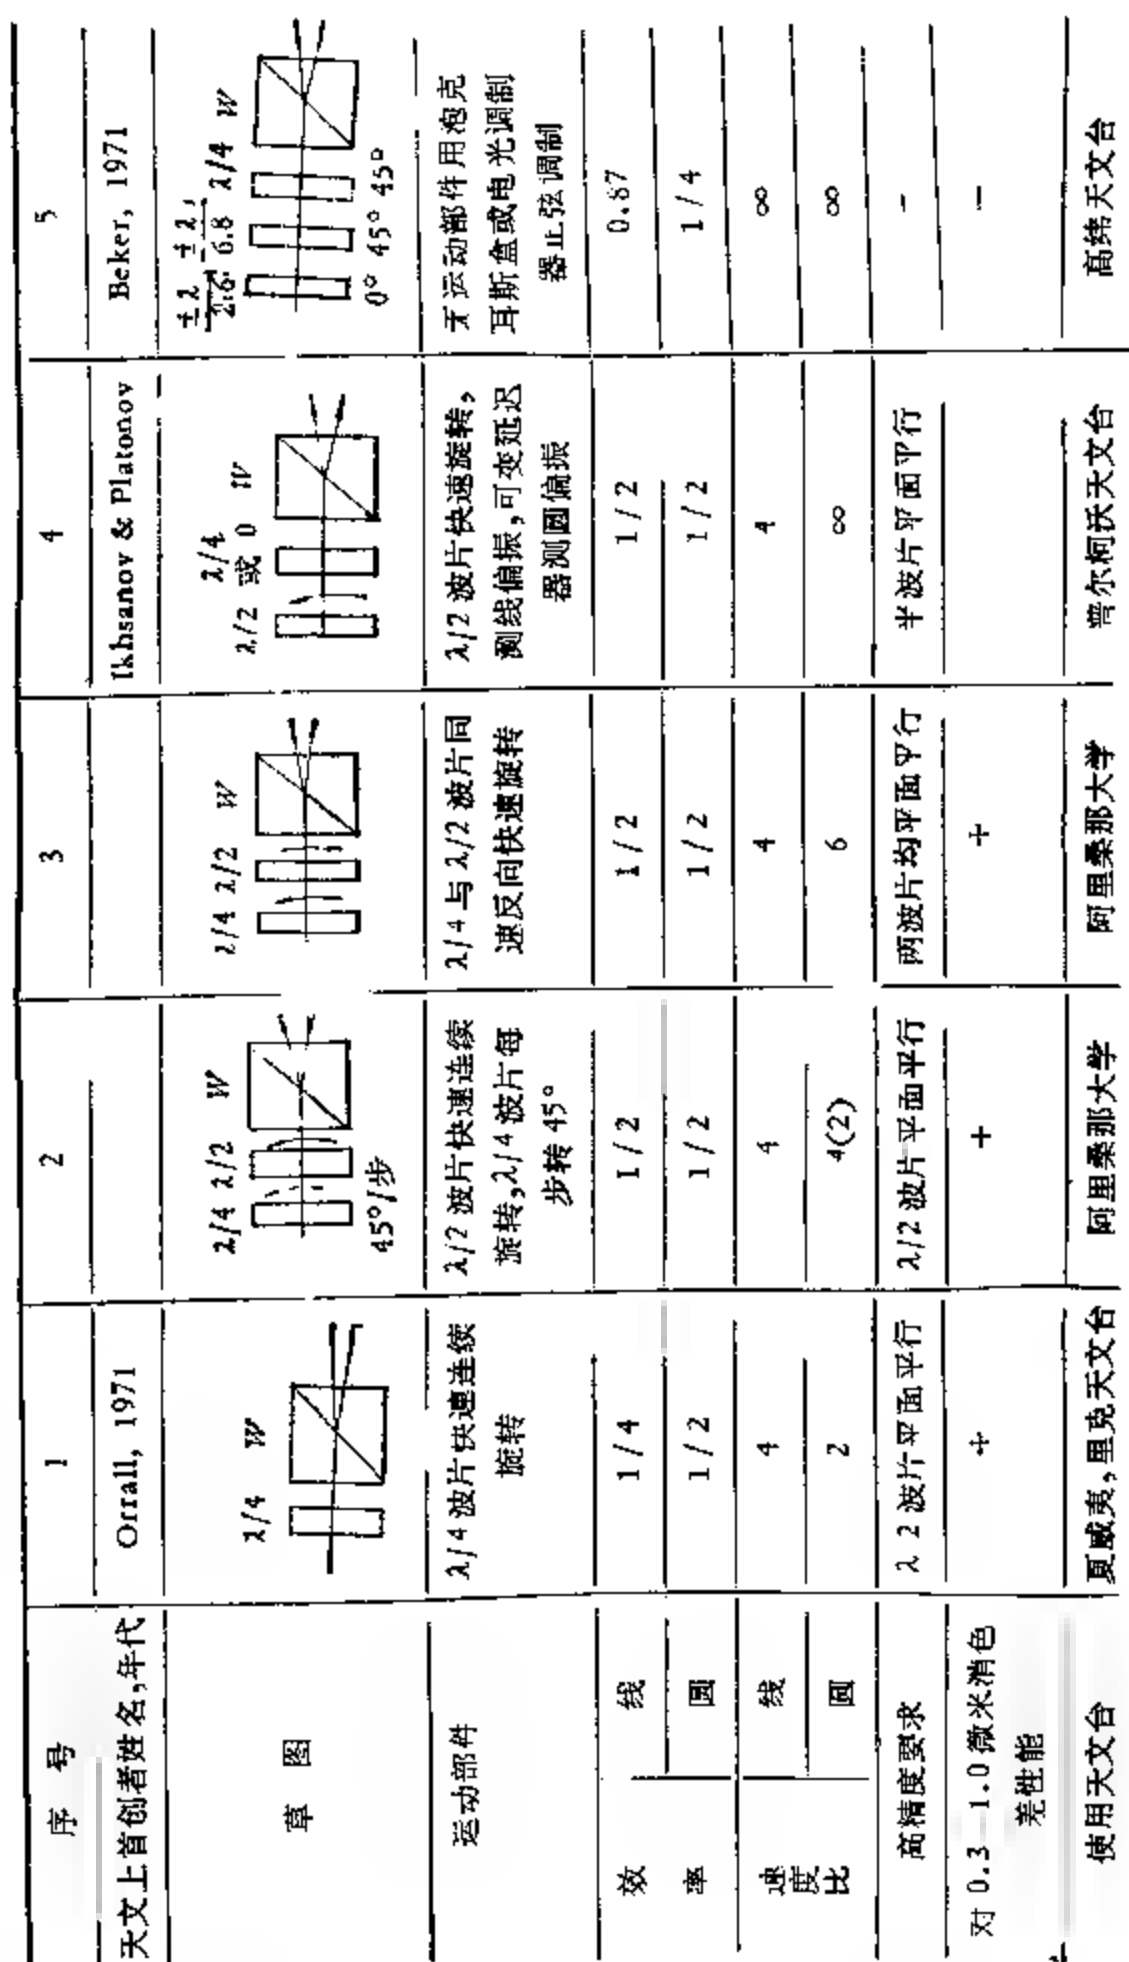 序 号
1
2
3
4
5
天文上首创者姓名,年代
Orrall, 1971
Ikhsanov & Platonov
Beker, 1971
草 图
λ/4 W
λ/4 λ/2 W
45°/步
λ/4 λ/2 W
λ/2 λ/4 或 0 W
±λ/2.6, ±λ/6.8, λ/4 W
0° 45° 45°
运动部件
λ/4 波片快速连续
旋转
λ/2 波片快速连续
旋转,λ/4 波片每
步转 45°
λ/4 与 λ/2 波片同
速反向快速旋转
λ/2 波片快速旋转,
测线偏振,可变延迟
器测圆偏振
无运动部件用泡克
耳斯盒或电光调制
器正弦调制
效率
线
1/4
1/2
1/2
1/2
0.87
圆
1/2
1/2
1/2
1/2
1/4
速度比
线
4
4
4
4
∞
圆
2
4(2)
6
∞
∞
高精度要求
λ 2 波片平面平行
λ/2 波片平面平行
两波片均平面平行
半波片平面平行
-
对 0.3—1.0 微米消色
差性能
+
+
+
-
使用天文台
夏威夷,里克天文台
阿里桑那大学
阿里桑那大学
普尔柯沃天文台
高纬天文台